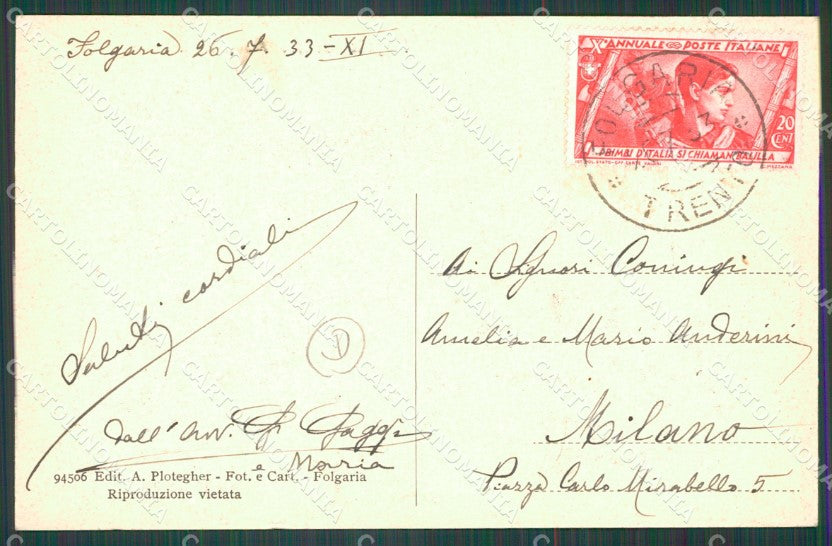 Folgaria 26. 7. 33-XI
X° ANNUALE POSTE ITALIANE
20
CENT
I BIMBI D'ITALIA SI CHIAMAN BALILLA
TRENTO
Saluti cordiali
D
dall' Avv.
e Maria
94506 Edit. A. Plotegher - Fot. e Cart. - Folgaria
Riproduzione vietata
Ai Signori Coniugi
Amelia e Mario Anderini
Milano
Piazza Carlo Mirabello 5
CARTOLINOMANIA